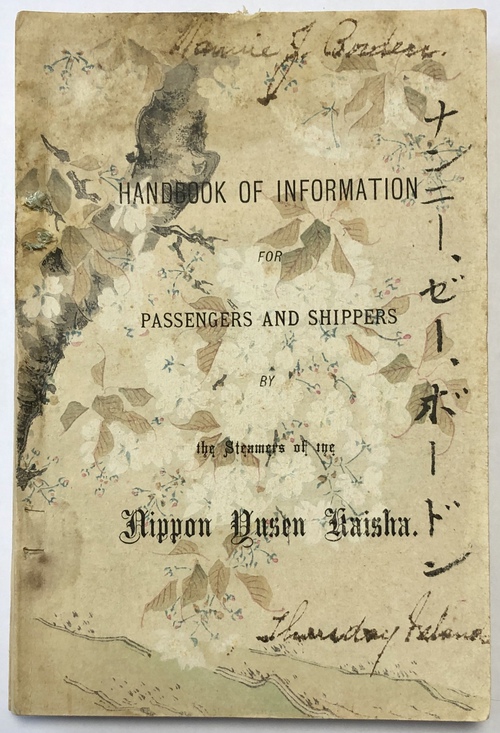 Nannie J. Bowden.
HANDBOOK OF INFORMATION
FOR
PASSENGERS AND SHIPPERS
BY
the Steamers of the
Nippon Yusen Kaisha.
Thursday Island
ナンニー、ゼー、ボードン